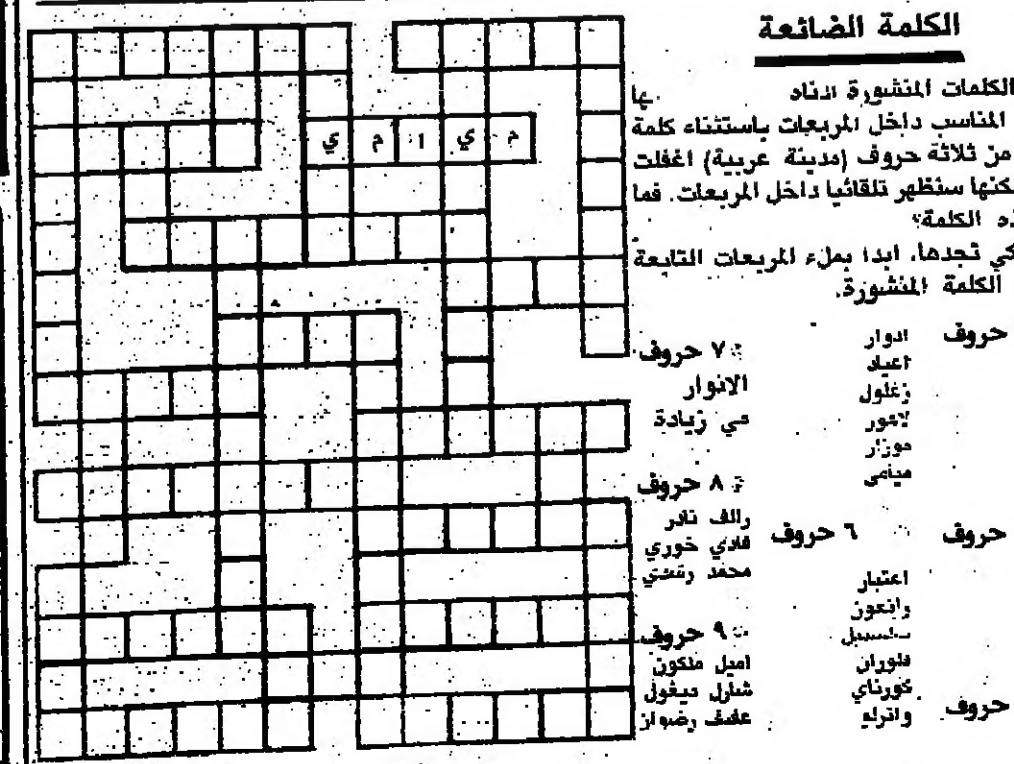 الكلمة الضائعة
الكلمات المنشورة ادناه بها
المناسب داخل المربعات باستثناء كلمة
من ثلاثة حروف (مدينة عربية) اغفلت
كنها ستظهر تلقائيا داخل المربعات. فما
ذه الكلمة؟
كي تجدها، ابدا بملء المربعات التابعة
الكلمة المنشورة.
م ي ا م ي
حروف
ادوار
اعياد
زغلول
لاهور
موزار
ميامي
حروف
٦ حروف
اعتبار
رائعون
سلسبيل
فلوران
كورناي
واترلو
حروف
٧ حروف
الانوار
مي زيادة
٨ حروف
رالف نادر
فادي خوري
محمد رشدي
٩ حروف
اميل ملكون
شارل ديغول
عفيف رضوان